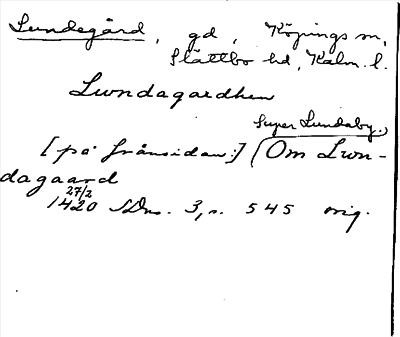 Lundegård, gd, Köpings sn,
Slättbo hd, Kalm. l.
Lundagardhen
super Lundaby.,
[på frånsidan:] (Om Lwn-
dagaard
27/2
1420 SDns. 3, s. 545 orig.